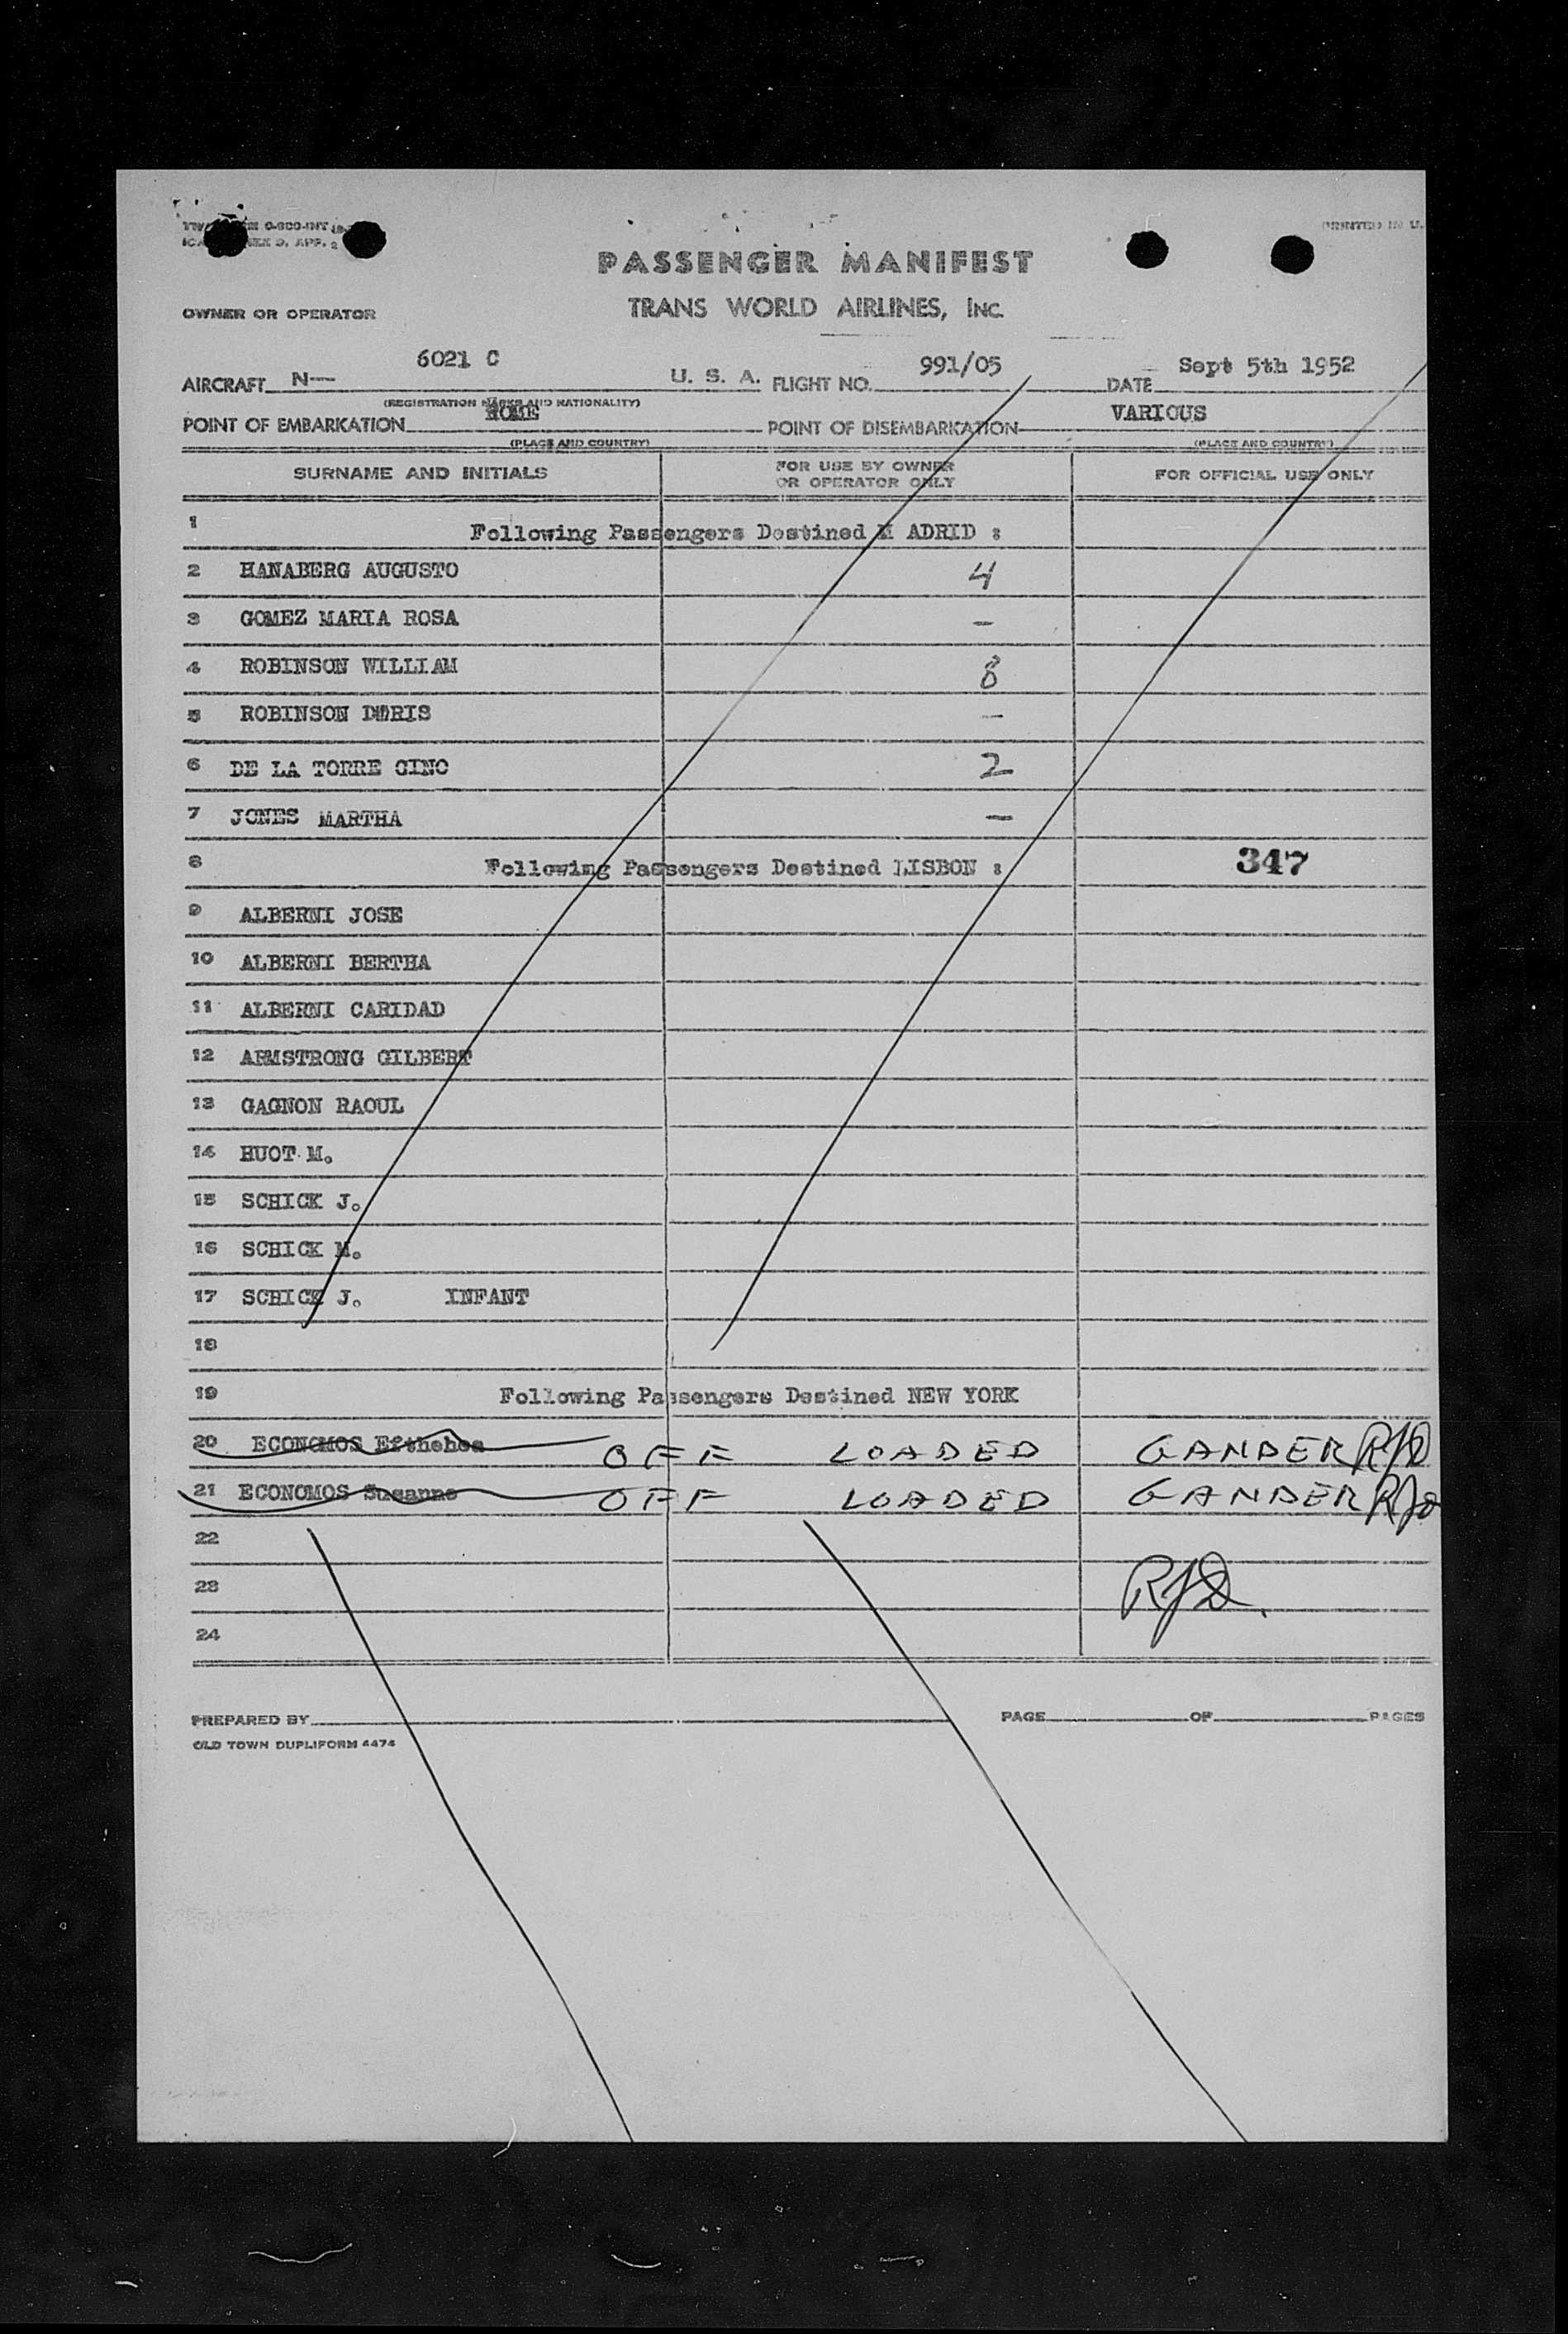 PRINTED IN U.
PASSENGER MANIFEST
OWNER OR OPERATOR TRANS WORLD AIRLINES, INC.
AIRCRAFT N— 6021 C U. S. A. FLIGHT NO. 991/05 DATE Sept 5th 1952
(REGISTRATION MARKS AND NATIONALITY)
POINT OF EMBARKATION ROME POINT OF DISEMBARKATION VARIOUS
(PLACE AND COUNTRY) (PLACE AND COUNTRY)
SURNAME AND INITIALS FOR USE BY OWNER OR OPERATOR ONLY FOR OFFICIAL USE ONLY
1 Following Passengers Destined M ADRID :
2 HANABERG AUGUSTO 4
3 GOMEZ MARIA ROSA —
4 ROBINSON WILLIAM 8
5 ROBINSON DORIS —
6 DE LA TORRE GINO 2
7 JONES MARTHA —
8 Following Passengers Destined LISBON : 347
9 ALBERNI JOSE
10 ALBERNI BERTHA
11 ALBERNI CARIDAD
12 ARMSTRONG GILBERT
13 GAGNON RAOUL
14 HUOT M.
15 SCHICK J.
16 SCHICK M.
17 SCHICK J. INFANT
18
19 Following Passengers Destined NEW YORK
20 ECONOMOS OFF LOADED GANDER RJD
21 ECONOMOS Susanne OFF LOADED GANDER RJD
22
23 RJD.
24
PREPARED BY PAGE OF PAGES
OLD TOWN DUPLIFORM 4474